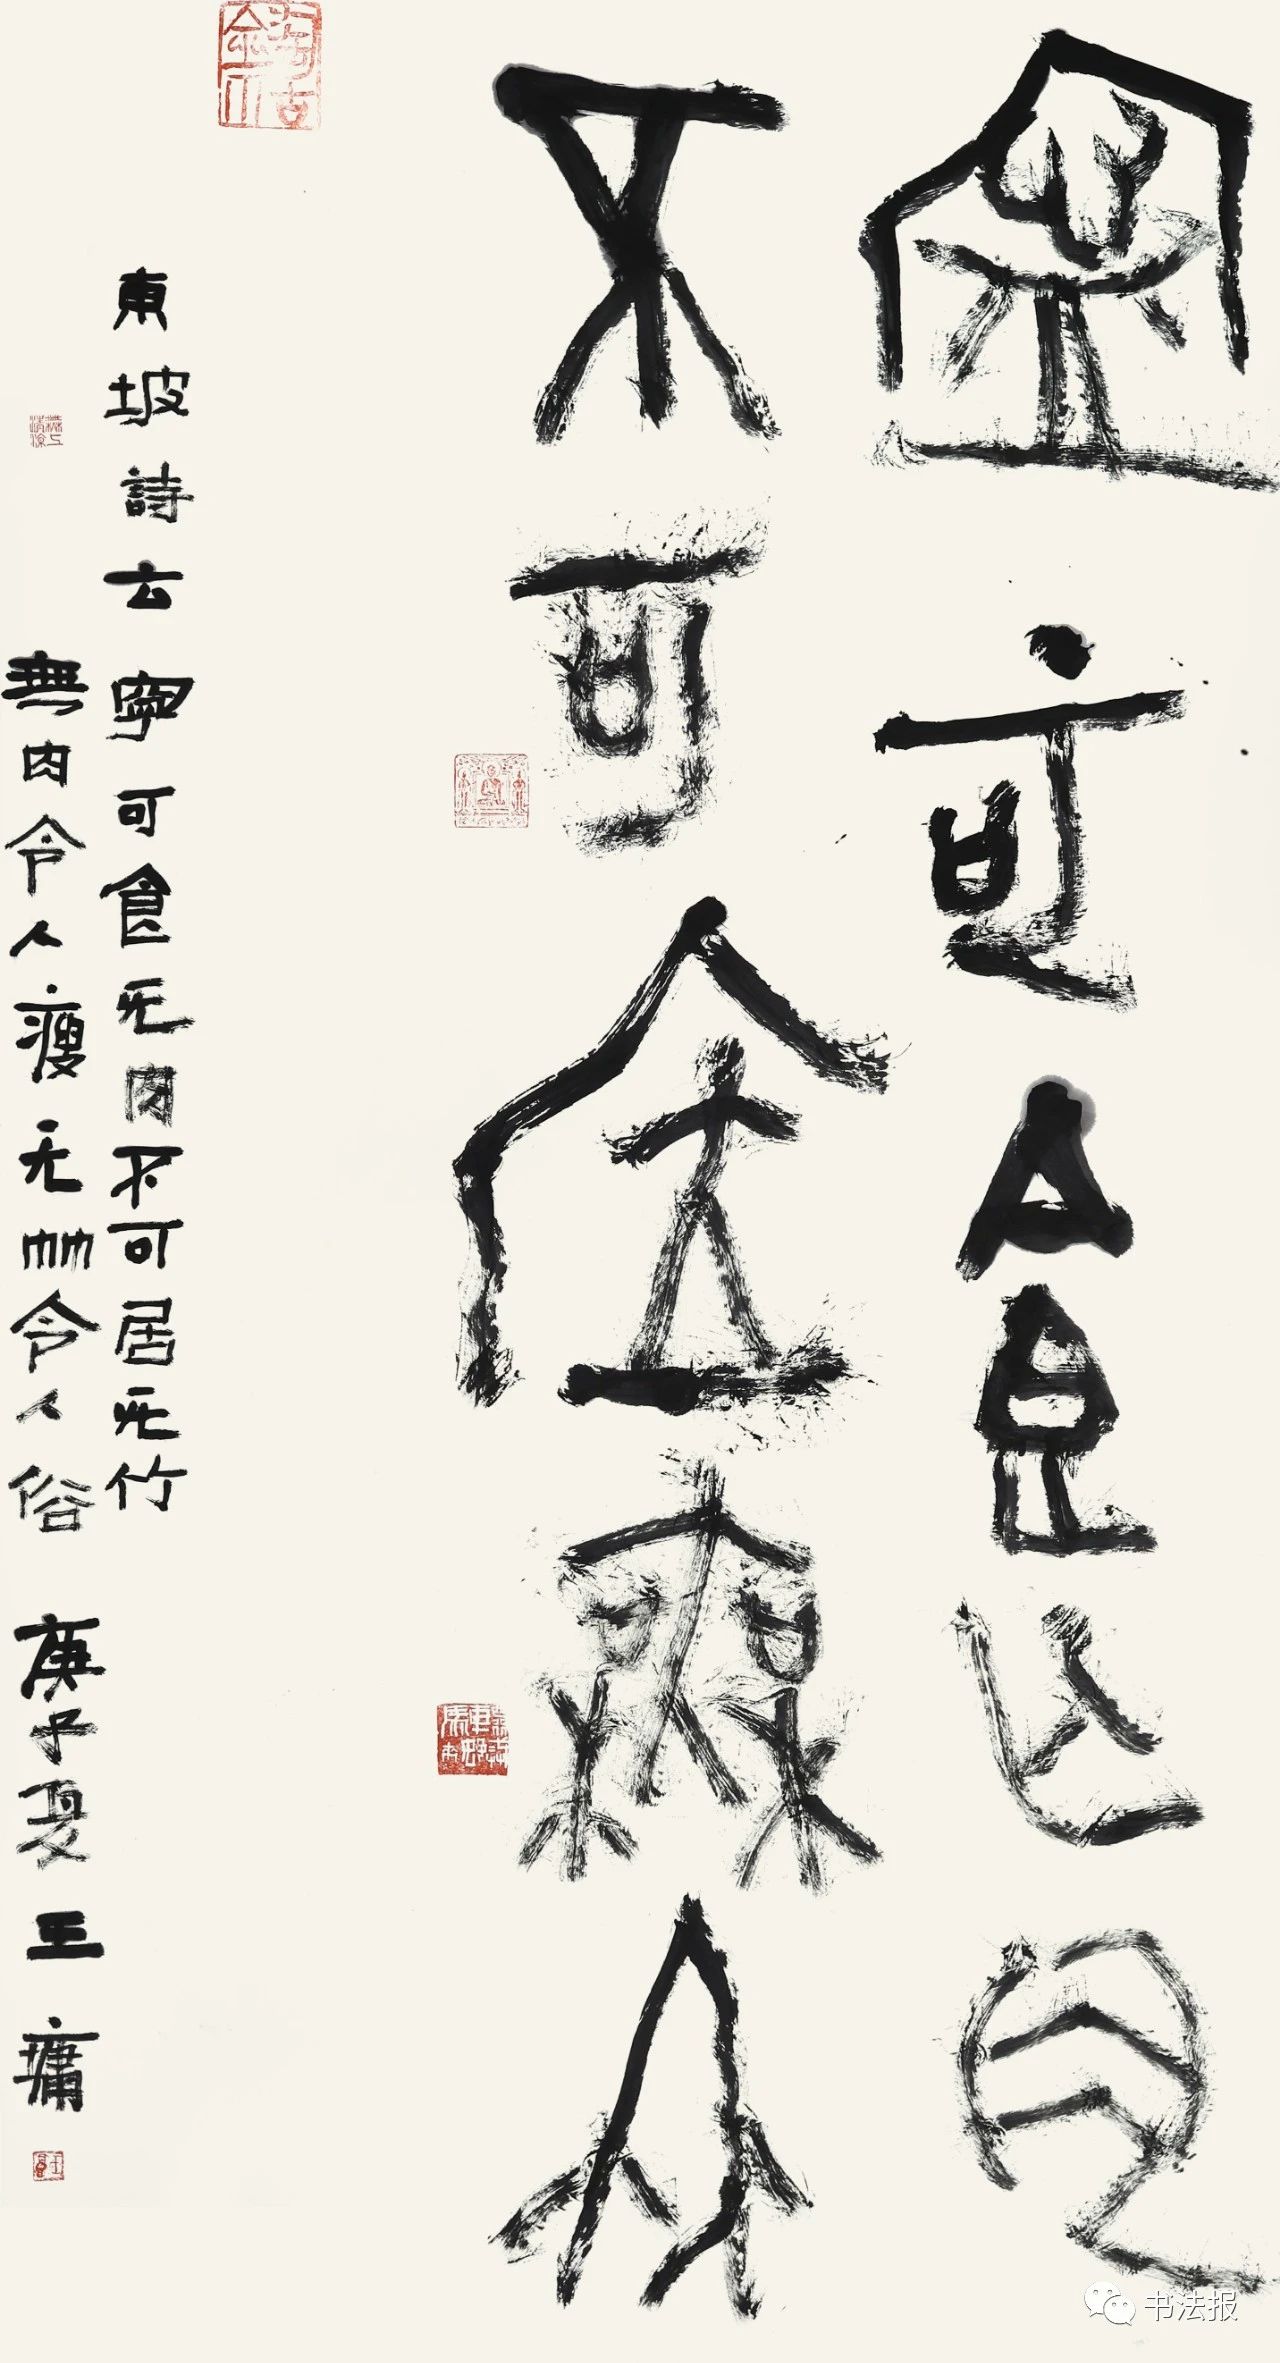 寧可食亡肉
不可居無竹
東坡詩云寧可食无肉不可居无竹
無肉令人瘦无竹令人俗 庚子夏 王鏞
书法报